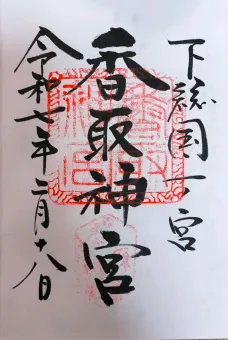 下総国一宮
香取神宮
令和七年二月十八日